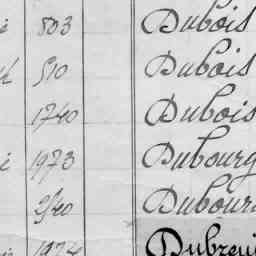 803 Dubois
510 Dubois
1740 Dubois
1973 Dubourg
2540 Dubour
1974 Dubreui